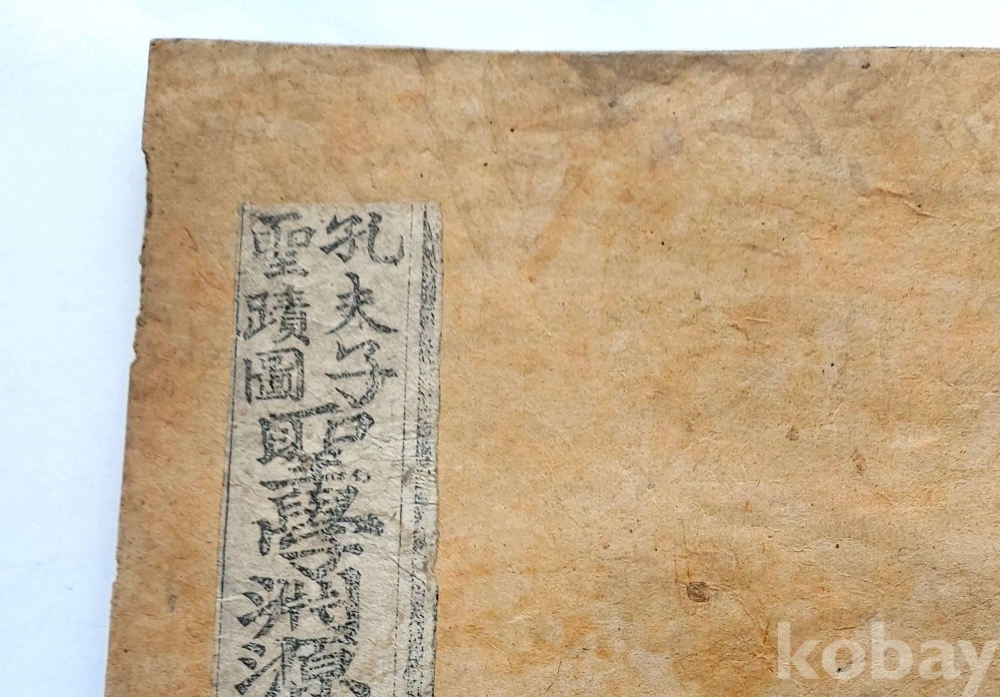 孔夫子
聖蹟圖
淵源
kobay